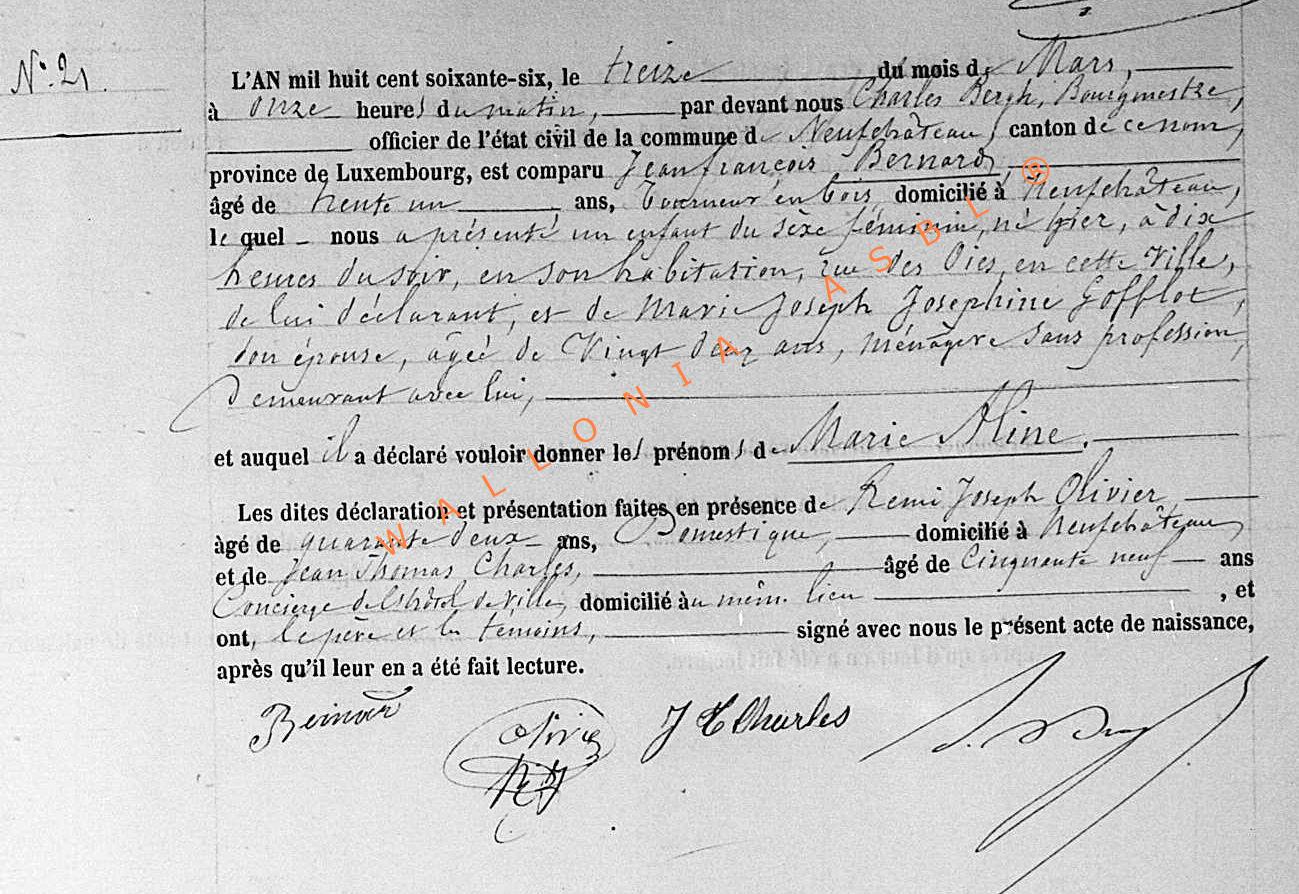 N.° 21.
L'AN mil huit cent soixante-six, le treize du mois de Mars,
à onze heures du matin, par devant nous Charles Bergh, Bourgmestre,
officier de l'état civil de la commune de Neufchâteau, canton de ce nom,
province de Luxembourg, est comparu Jean françois Bernard,
âgé de trente un ans, Tourneur en bois domicilié à Neufchâteau,
lequel nous a présenté un enfant du sèxe féminin, né hier, à dix
heures du soir, en son habitation, rue des Oies, en cette Ville,
de lui déclarant, et de Marie Joseph Josephine Gofflot,
son épouse, agée de Vingt deux ans, ménagère sans profession,
Demeurant avec lui,
et auquel il a déclaré vouloir donner les prénoms de Marie Aline.
Les dites déclaration et présentation faites en présence de Remi Joseph Olivier
âgé de quarante deux ans, Domestique, domicilié à Neufchâteau,
et de Jean Thomas Charles, âgé de Cinquante neuf ans
Concierge de l'hôtel de Ville, domicilié au même lieu , et
ont, le père et les temoins, signé avec nous le présent acte de naissance,
après qu'il leur en a été fait lecture.
Bernard Olivier J T Charles
R J
WALLONIA ASBL ®